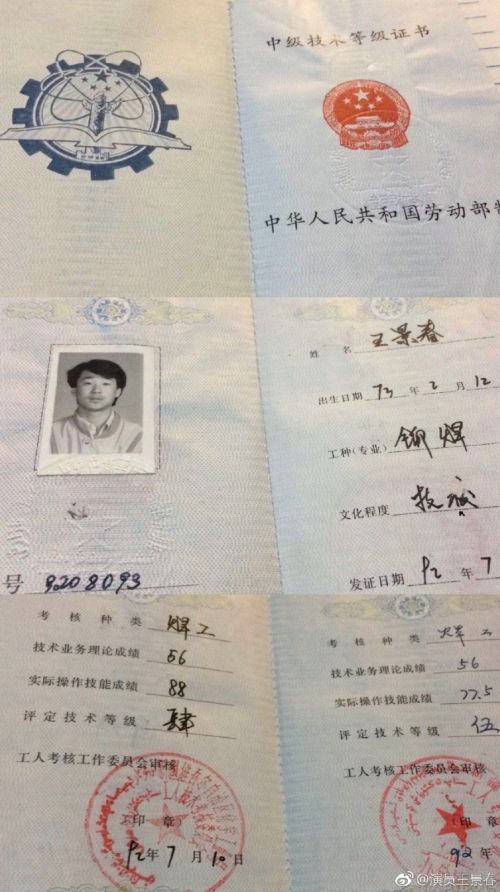 中级技术等级证书
中华人民共和国劳动部制
姓 名 王景春
出生日期 73 年 2 月 12
工种(专业) 铆焊
文化程度 技校
号 9208093
发证日期 92 年 7
考 核 种 类 焊工
技术业务理论成绩 56
实际操作技能成绩 88
评定技术等级 肆
工人考核工作委员会审核
(印 章)
92年 7 月 10 日
考 核 种 类 焊工
技术业务理论成绩 56
实际操作技能成绩 77.5
评定技术等级 伍
工人考核工作委员会审核
(印 章)
92 年
@演员王景春